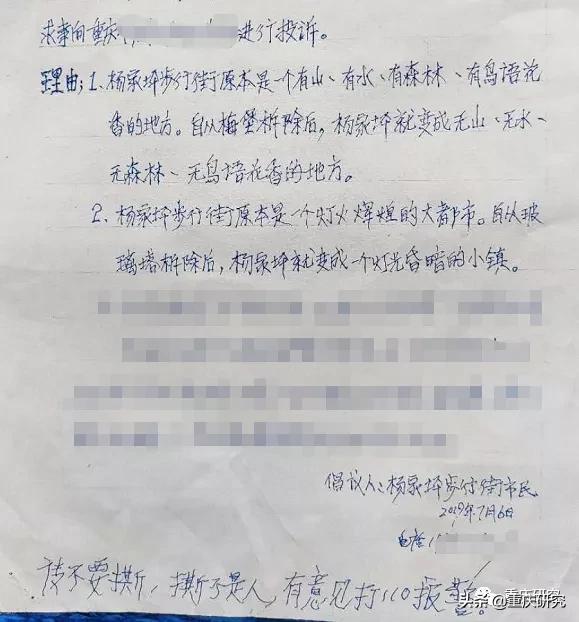 求事向重庆 进行投诉。
理由:1、杨家坪步行街原本是一个有山、有水、有森林、有鸟语花
香的地方。自从梅堡拆除后,杨家坪就变成无山、无水、
无森林、无鸟语花香的地方。
2、杨家坪步行街原本是一个灯火辉煌的大都市。自从玻
璃塔拆除后,杨家坪就变成一个灯光昏暗的小镇。
倡议人:杨家坪步行街市民
2019年7月6日
电话
请不要撕,撕了是人,有意见打110报警。
重庆研究
头条@重庆研究